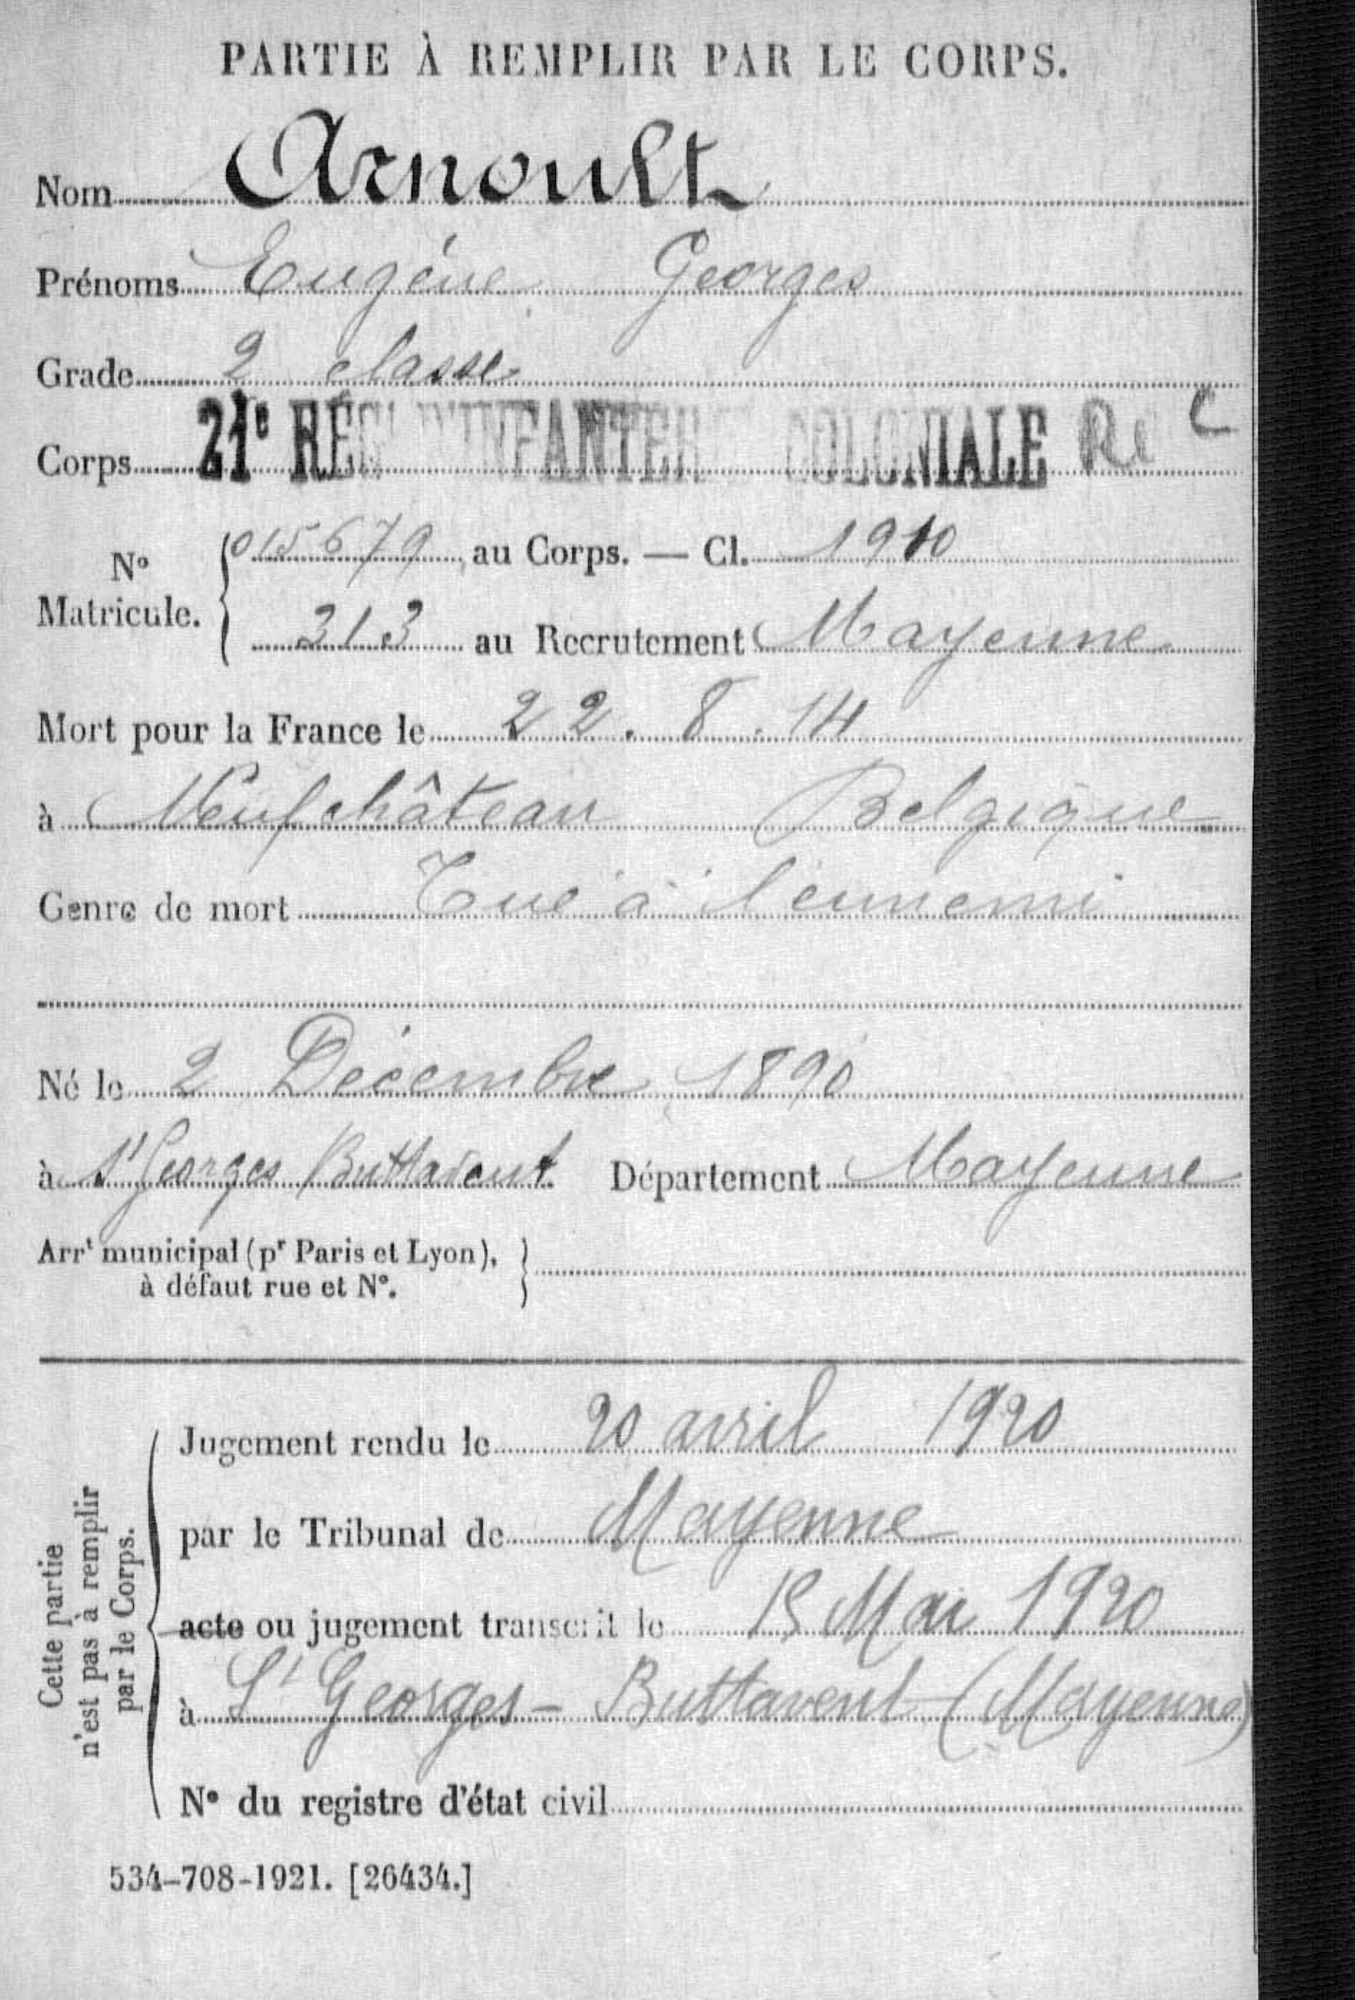 PARTIE À REMPLIR PAR LE CORPS.
Nom Arnoult
Prénoms Eugène Georges
Grade 2 classe
Corps 21e RÉGt D'INFANTERIE COLONIALE RIC
No Matricule. 015679 au Corps. — Cl. 1910
313 au Recrutement Mayenne
Mort pour la France le 22.8.14
à Neufchâteau Belgique
Genre de mort Tué à l'ennemi
Né le 2 Décembre 1890
à St Georges Buttavent Département Mayenne
Arrt municipal (pr Paris et Lyon),
à défaut rue et No.
Cette partie
n'est pas à remplir
par le Corps.
Jugement rendu le 20 avril 1920
par le Tribunal de Mayenne
acte ou jugement transcrit le 15 Mai 1920
à St Georges-Buttavent (Mayenne)
No du registre d'état civil
534-708-1921. [26434.]